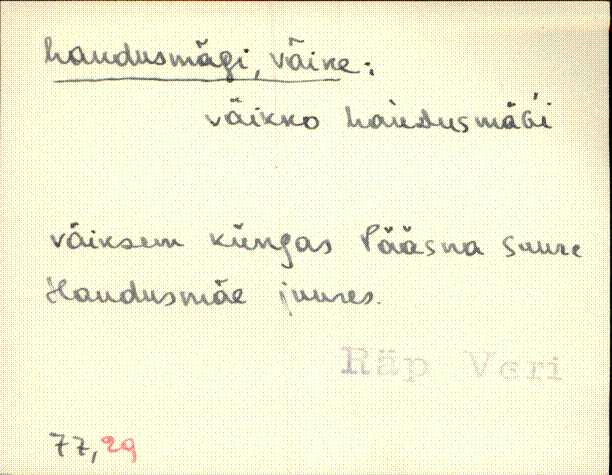 haudusmägi, väike:
väikko haúdusmäǵi
väiksem küngas Pääsna Suure
Haudusmäe juures.
Räp Veri
77, 29